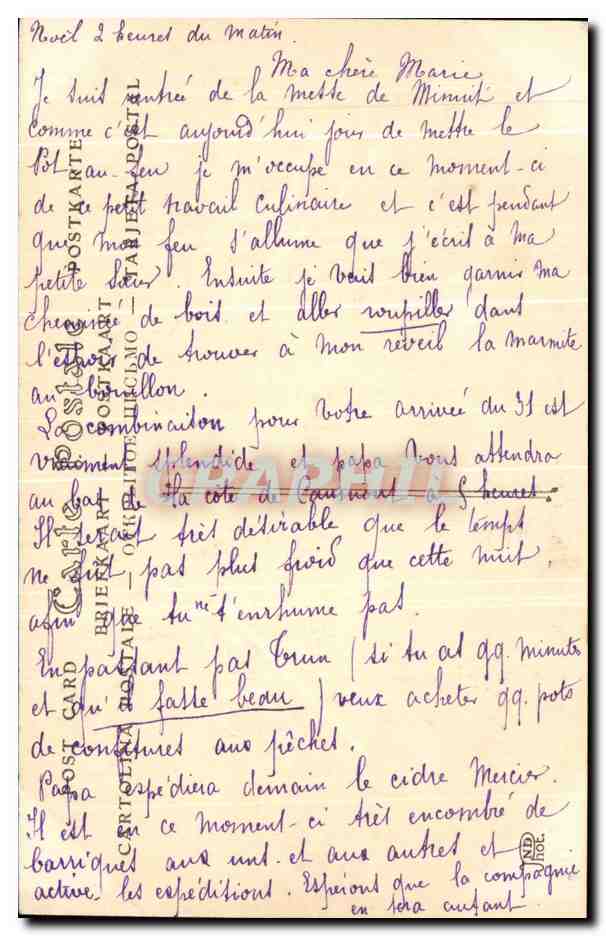 Noël 2 heures du matin.
Ma chère Marie
Je suis rentrée de la messe de Minuit et
comme c'est aujourd'hui jour de mettre le
Pot au-feu je m'occupe en ce moment-ci
de ce petit travail culinaire et c'est pendant
que mon feu s'allume que j'écris à ma
petite Sœur. Ensuite je vais bien garnir ma
cheminée de bois et aller roupiller dans
l'espoir de trouver à mon réveil la marmite
au bouillon.
La combinaison pour votre arrivée du 31 est
vraiment splendide et papa vous attendra
au bas de la côte de à 5 heures
Il serait très désirable que le temps
ne soit pas plus froid que cette nuit,
afin que tu ne t'enrhume pas.
En passant par Trun (si tu as qq. minutes
et qu'il fasse beau) veux acheter qq. pots
de confitures aux pêches.
Papa expédiera demain le cidre Mercier.
Il est en ce moment-ci très encombré de
barriques aux uns et aux autres et
active les expéditions. Espérons que la compagnie
en fera autant.
Carte Postale
POST CARD
POSTKARTE
BRIEFKAART
POSTKAART
CARTOLINA POSTALE — ОТКРЫТОЕ ПИСЬМО — TARJETA POSTAL
ND
Phot.
CPAPHIL